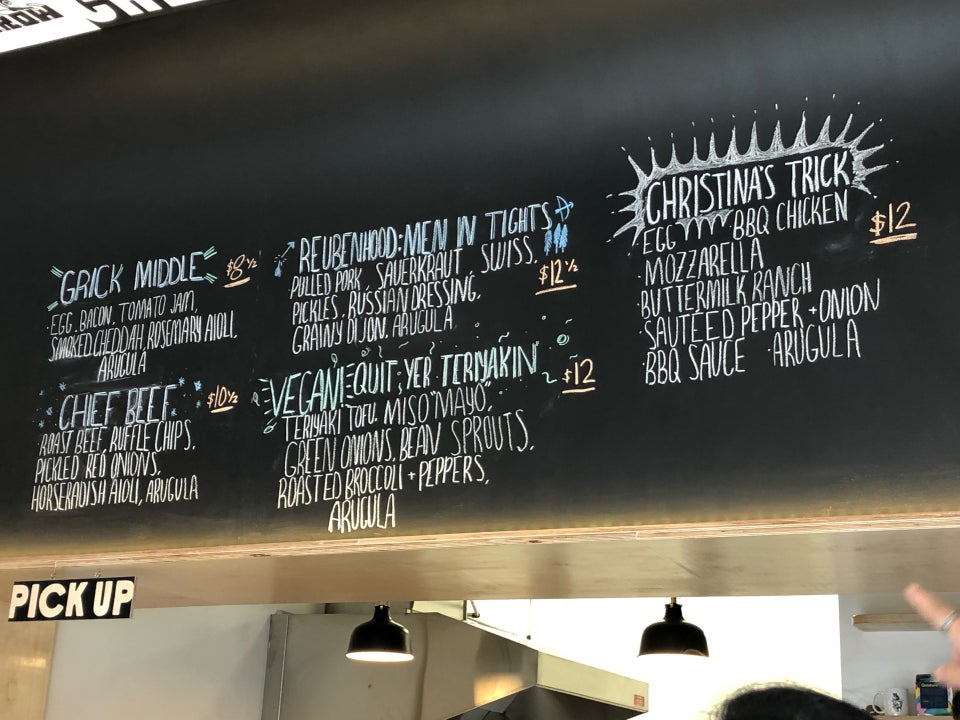 GRICK MIDDLE $8 1/2
EGG, BACON, TOMATO JAM,
SMOKED CHEDDAH, ROSEMARY AIOLI,
ARUGULA
CHIEF BEEF $10 1/2
ROAST BEEF, RUFFLE CHIPS,
PICKLED RED ONIONS,
HORSERADISH AIOLI, ARUGULA
REUBENHOOD: MEN IN TIGHTS
PULLED PORK, SAUERKRAUT, SWISS,
PICKLES, RUSSIAN DRESSING,
GRAINY DIJON, ARUGULA
$12 1/2
VEGAN! QUIT, YER TERIYAKIN
$12
TERIYAKI TOFU, MISO "MAYO",
GREEN ONIONS, BEAN SPROUTS,
ROASTED BROCCOLI + PEPPERS,
ARUGULA
CHRISTINA'S TRICK
$12
EGG BBQ CHICKEN
MOZZARELLA
BUTTERMILK RANCH
SAUTEED PEPPER + ONION
BBQ SAUCE · ARUGULA
PICK UP